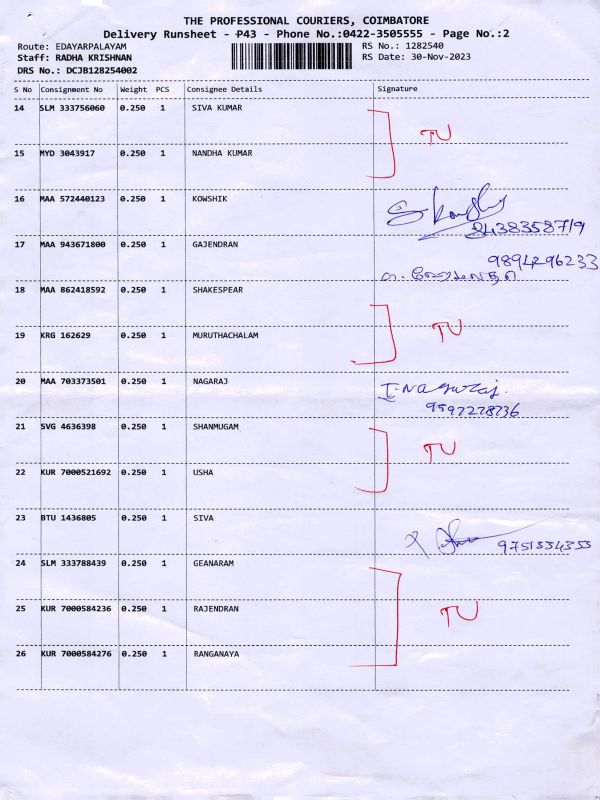 THE PROFESSIONAL COURIERS, COIMBATORE
Delivery Runsheet - P43 - Phone No.:0422-3505555 - Page No.:2
Route: EDAYARPALAYAM RS No.: 1282540
Staff: RADHA KRISHNAN RS Date: 30-Nov-2023
DRS No.: DCJB128254002
S No Consignment No Weight PCS Consignee Details Signature
14 SLM 333756060 0.250 1 SIVA KUMAR
TU
15 MYD 3043917 0.250 1 NANDHA KUMAR
16 MAA 572440123 0.250 1 KOWSHIK
8438358719
17 MAA 943671800 0.250 1 GAJENDRAN
9894296233
18 MAA 862418592 0.250 1 SHAKESPEAR
TU
19 KRG 162629 0.250 1 MURUTHACHALAM
20 MAA 703373501 0.250 1 NAGARAJ I.Nagaraj.
9597278736
21 SVG 4636398 0.250 1 SHANMUGAM
TU
22 KUR 7000521692 0.250 1 USHA
23 BTU 1436805 0.250 1 SIVA
9751534353
24 SLM 333788439 0.250 1 GEANARAM
25 KUR 7000584236 0.250 1 RAJENDRAN TU
26 KUR 7000584276 0.250 1 RANGANAYA